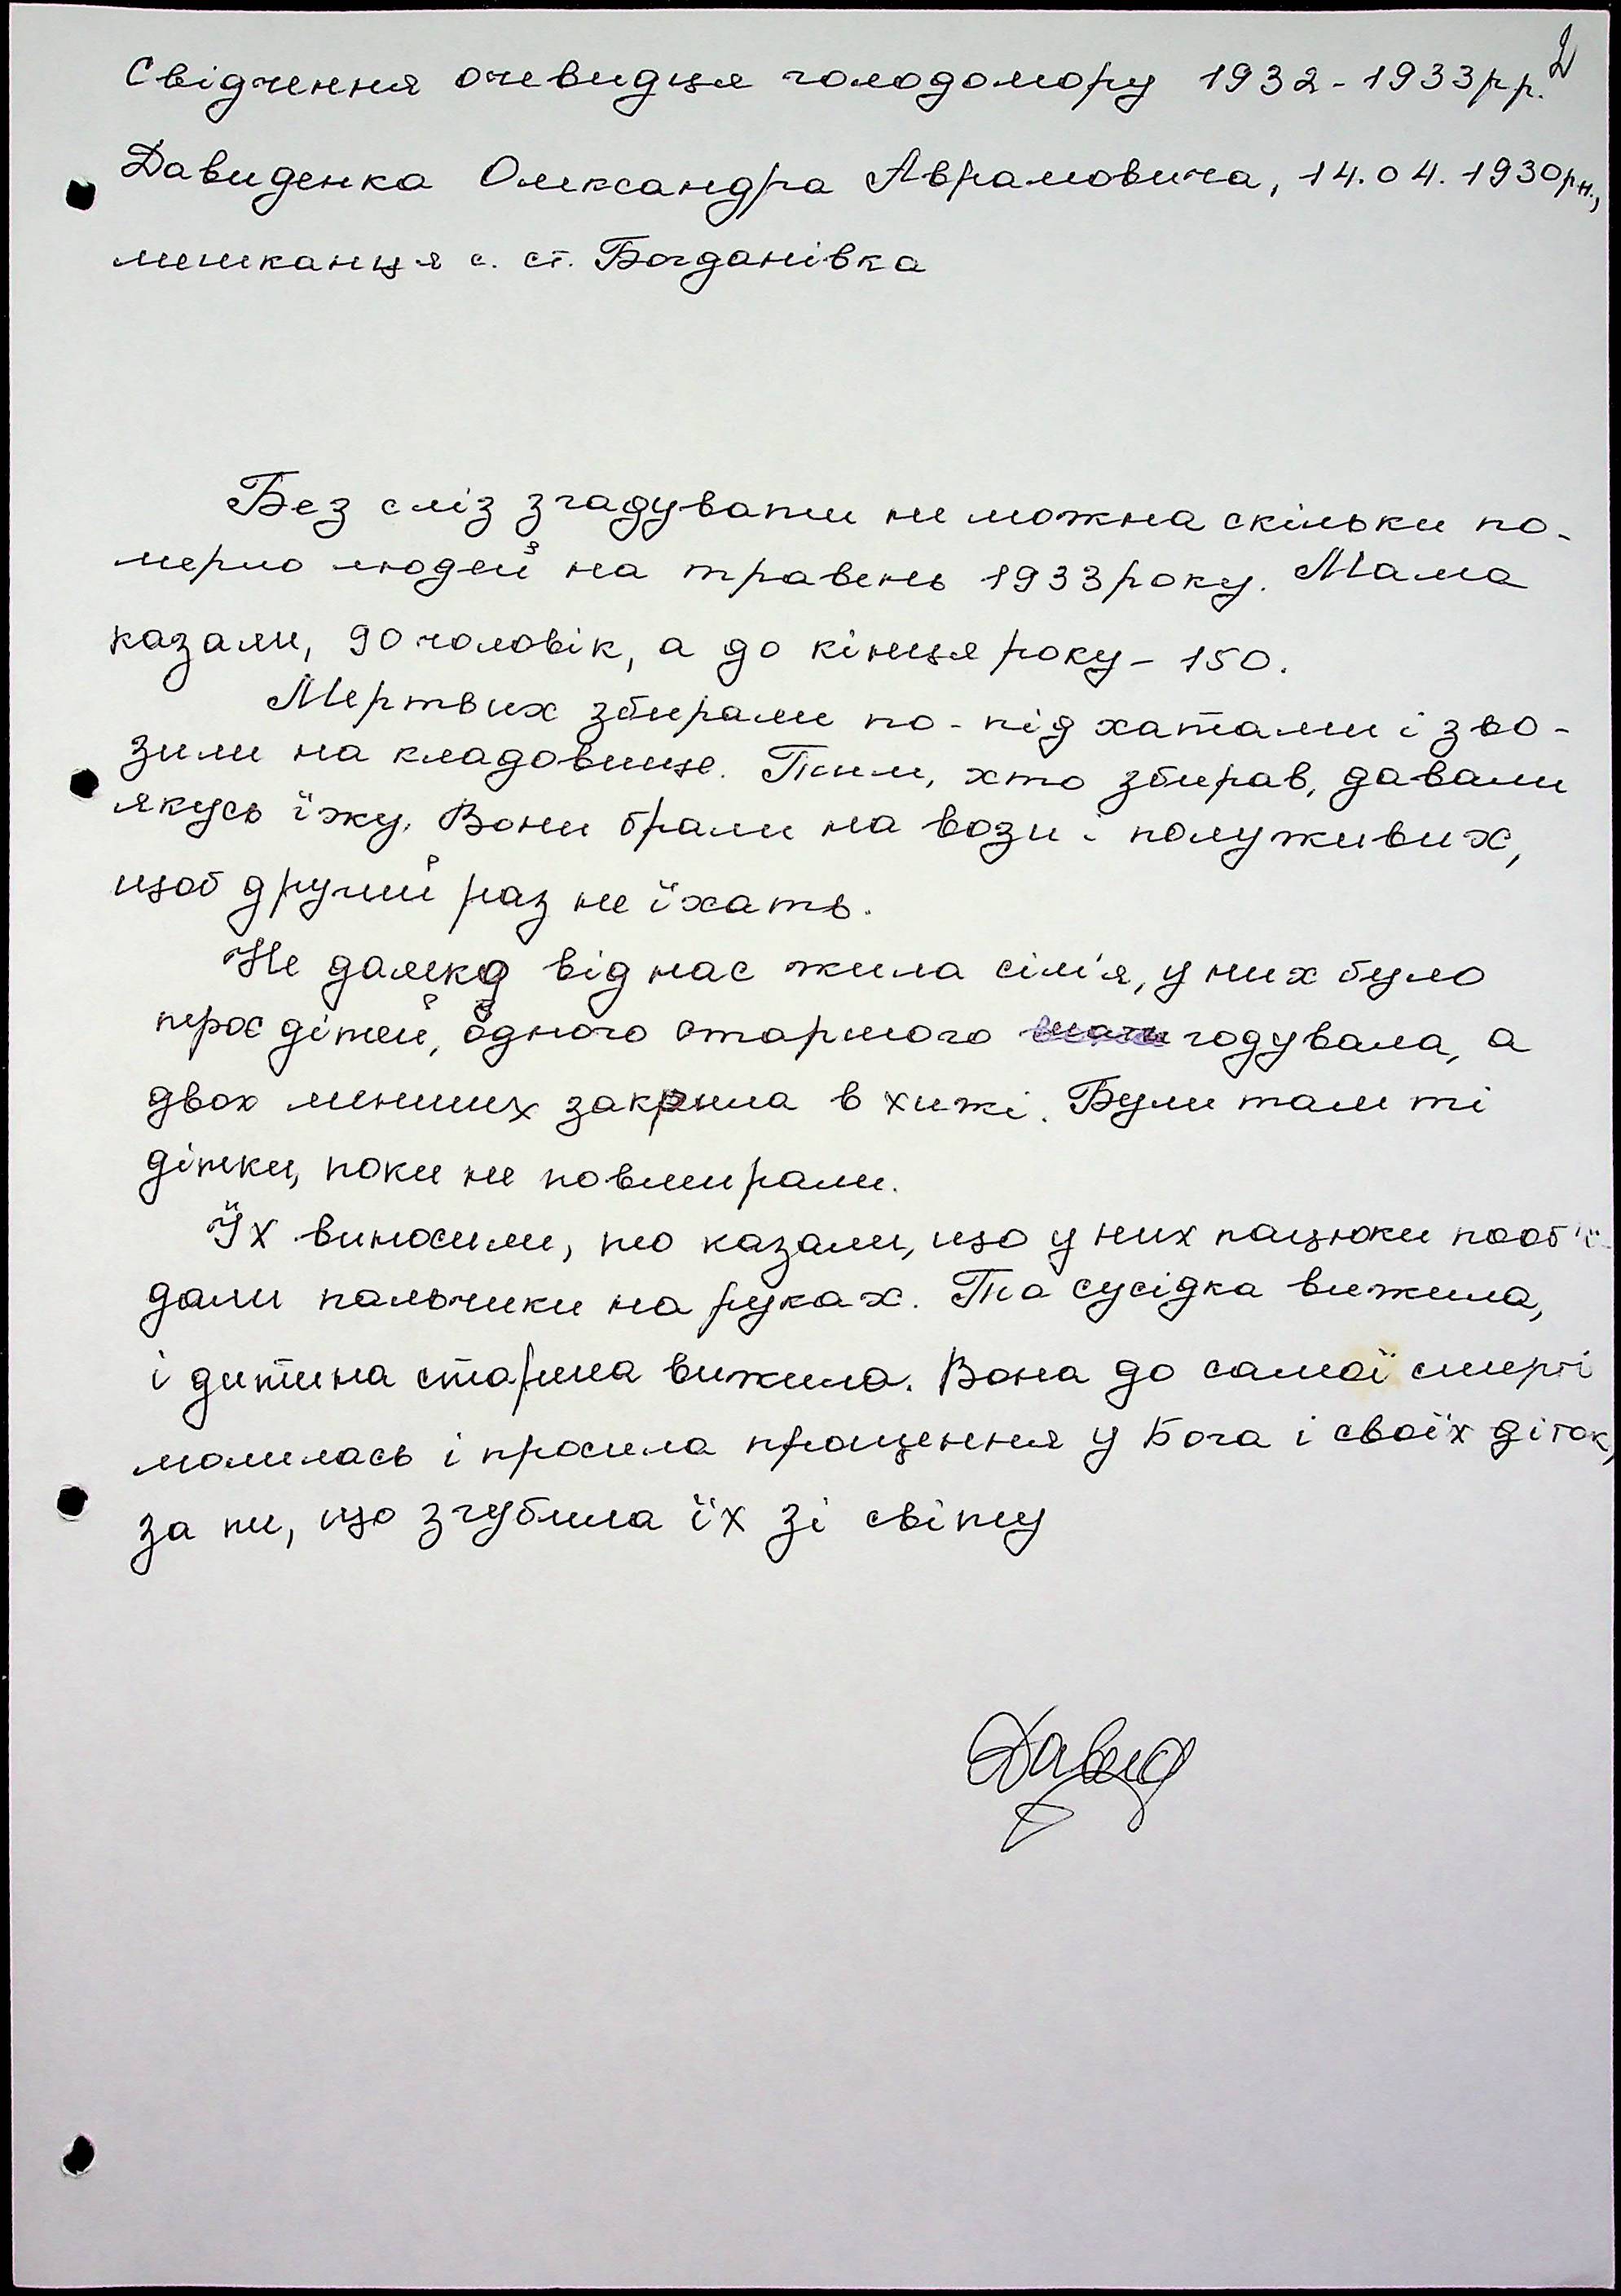 2
Свідчення очевидця голодомору 1932-1933рр.
Давиденка Олександра Аврамовича, 14.04.1930рн.,
мешканця с. ст. Богданівка
Без сліз згадувати не можна скільки по-
мерло людей на травень 1933року. Мама
казали, 90 чоловік, а до кінця року - 150.
Мертвих збирали по-під хатами і зво-
зили на кладовище. Тим, хто збирав, давали
якусь їжу. Вони брали на вози і полуживих,
щоб другий раз не їхать.
Не далеко від нас жила сім'я, у них було
троє дітей, одного старшого мати годувала, а
двох менших закрила в хижі. Були там ті
дітки, поки не повмирали.
Їх виносили, то казали, що у них пацюки пооб'ї-
дали пальчики на руках. Та сусідка вижила,
і дитина старша вижила. Вона до самої смерті
молилась і просила прощення у Бога і своїх діток,
за те, що згубила їх зі світу
Давид